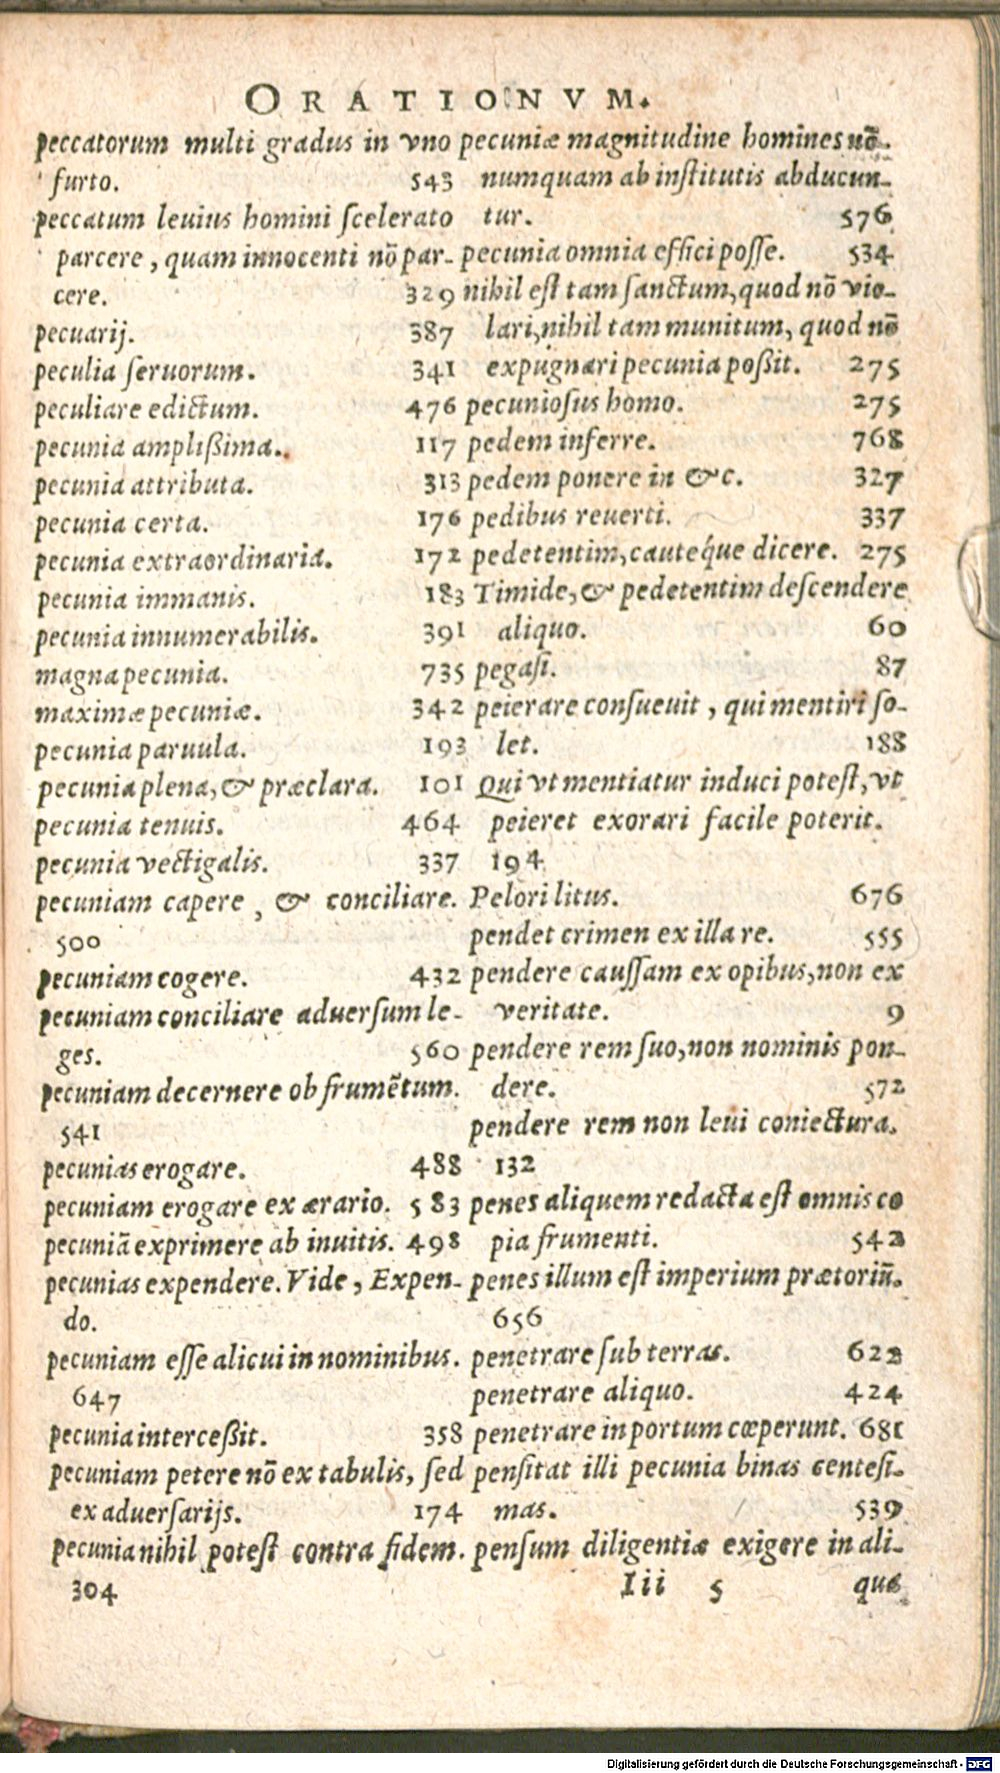 ORATIONVM.
peccatorum multi gradus in vno
furto. 543
peccatum leuius homini ſcelerato
parcere, quam innocenti nō par-
cere. 329
pecuarij. 387
peculia ſeruorum. 341
peculiare edictum. 476
pecunia ampliſßima. 117
pecunia attributa. 313
pecunia certa. 176
pecunia extraordinaria. 172
pecunia immanis. 183
pecunia innumerabilis. 391
magna pecunia. 735
maximæ pecuniæ. 342
pecunia paruula. 193
pecunia plena, & præclara. 101
pecunia tenuis. 464
pecunia vectigalis. 337
pecuniam capere, & conciliare.
500
pecuniam cogere. 432
pecuniam conciliare aduerſum le-
ges. 560
pecuniam decernere ob frumētum.
541
pecunias erogare. 488
pecuniam erogare ex ærario. 583
pecuniā exprimere ab inuitis. 498
pecunias expendere. Vide, Expen-
do.
pecuniam eſſe alicui in nominibus.
647
pecunia interceßit. 358
pecuniam petere nō ex tabulis, ſed
ex aduerſarijs. 174
pecunia nihil poteſt contra fidem.
304
pecuniæ magnitudine homines nō-
numquam ab inſtitutis abducun-
tur. 576
pecunia omnia effici poſſe. 534
nihil eſt tam ſanctum, quod nō vio-
lari, nihil tam munitum, quod nō
expugnari pecunia poßit. 275
pecunioſus homo. 275
pedem inferre. 768
pedem ponere in &c. 327
pedibus reuerti. 337
pedetentim, cauteq́ue dicere. 275
Timide, & pedetentim deſcendere
aliquo. 60
pegaſi. 87
peierare conſueuit, qui mentiri ſo-
let. 188
Qui vt mentiatur induci poteſt, vt
peieret exorari facile poterit.
194
Pelori litus. 676
pendet crimen ex illa re. 555
pendere cauſſam ex opibus, non ex
veritate. 9
pendere rem ſuo, non nominis pon-
dere. 572
pendere rem non leui coniectura.
132
penes aliquem redacta eſt omnis co
pia frumenti. 542
penes illum eſt imperium prætoriū.
656
penetrare ſub terras. 622
penetrare aliquo. 424
penetrare in portum cœperunt. 681
penſitat illi pecunia binas centeſi-
mas. 539
penſum diligentiæ exigere in ali-
Iii 5 quo
Digitalisierung gefördert durch die Deutsche Forschungsgemeinschaft - DFG